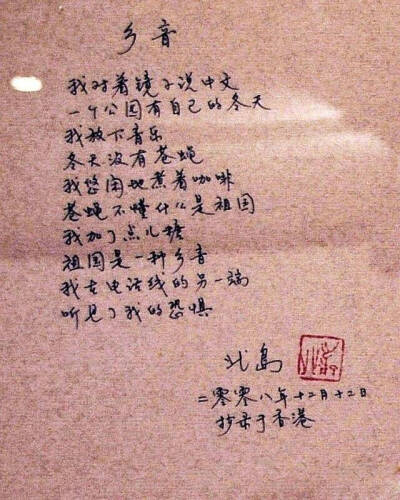 乡音
我对着镜子说中文
一个公园有自己的冬天
我放下音乐
冬天没有苍蝇
我悠闲地煮着咖啡
苍蝇不懂什么是祖国
我加了点儿糖
祖国是一种乡音
我在电话线的另一端
听见了我的恐惧
北岛
二零零八年十二月十二日
抄录于香港